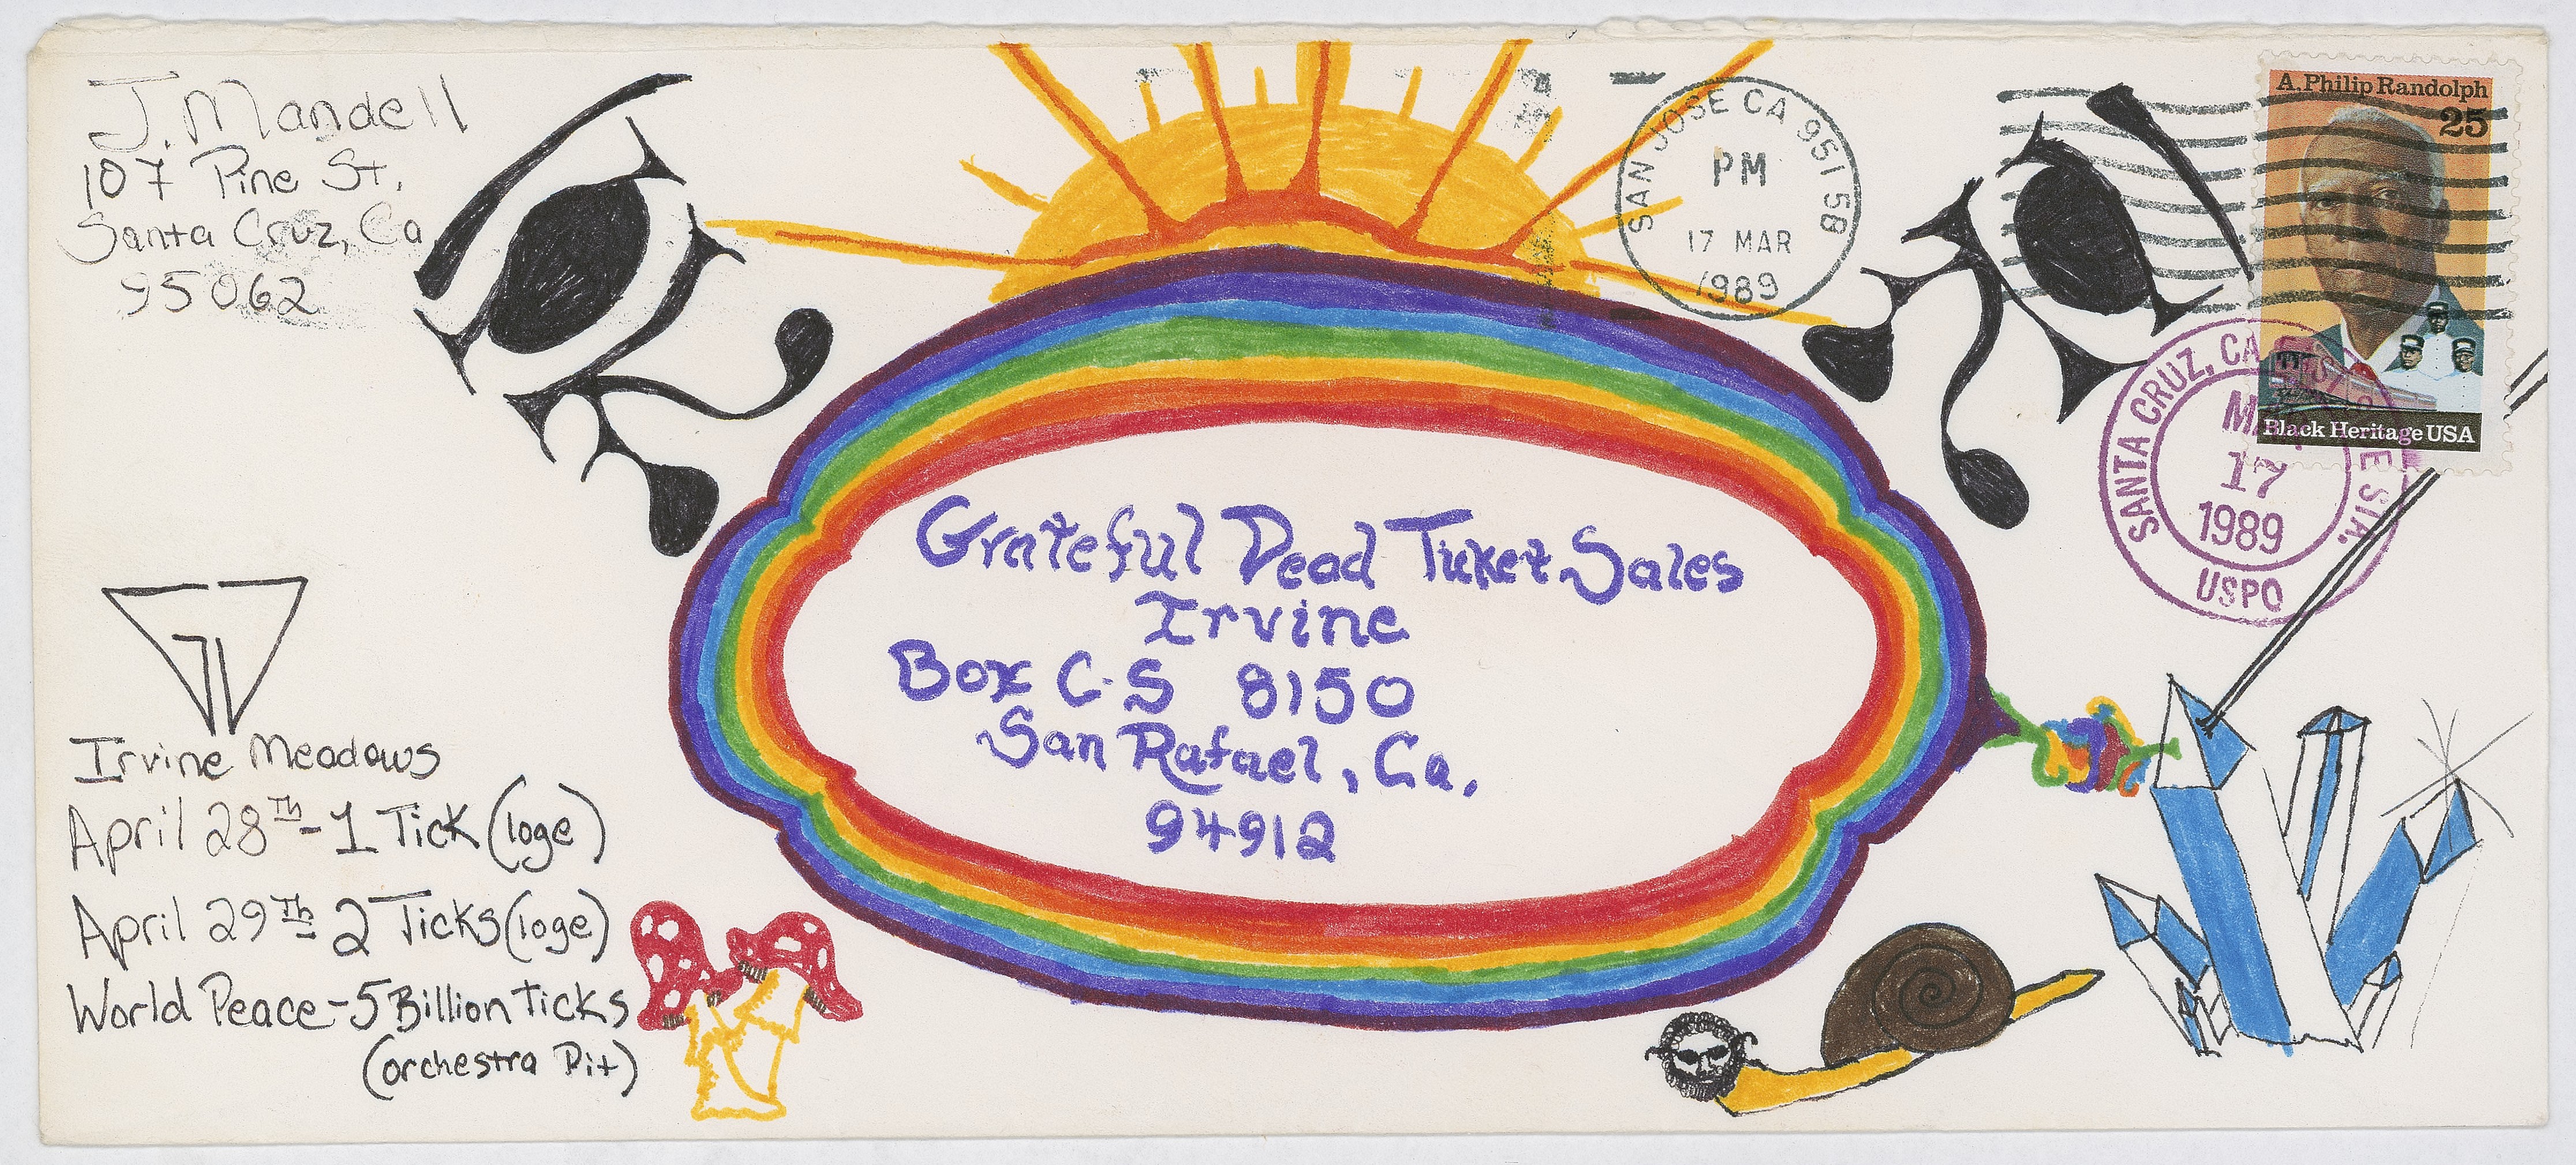 J. Mandell
107 Pine St.
Santa Cruz, Ca
95062
SAN JOSE CA 951 5B
PM
17 MAR
1989
A. Philip Randolph
25
Black Heritage USA
SANTA CRUZ, CA
MAR
17
1989
STA.
USPO
Grateful Dead Ticket Sales
Irvine
Box C-S 8150
San Rafael, Ca.
94912
Irvine Meadows
April 28Th - 1 Tick (loge)
April 29Th 2 Ticks (loge)
World Peace - 5 Billion Ticks
(orchestra Pit)